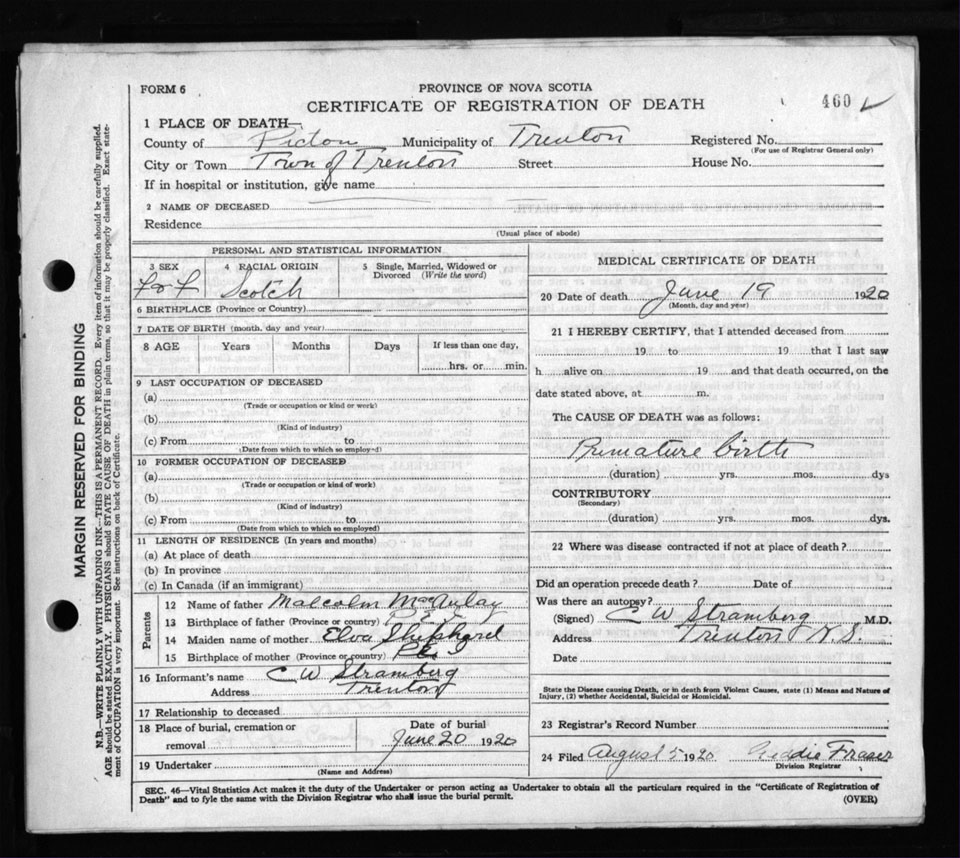 FORM 6
PROVINCE OF NOVA SCOTIA
CERTIFICATE OF REGISTRATION OF DEATH
460
1 PLACE OF DEATH—
County of Pictou Municipality of Trenton Registered No.
(For use of Registrar General only)
City or Town Town of Trenton Street House No.
If in hospital or institution, give name
2 NAME OF DECEASED
Residence
(Usual place of abode)
PERSONAL AND STATISTICAL INFORMATION
3 SEX 4 RACIAL ORIGIN 5 Single, Married, Widowed or Divorced (Write the word)
Scotch
6 BIRTHPLACE (Province or County)
7 DATE OF BIRTH (month, day and year)
8 AGE Years Months Days If less than one day,
hrs. or min.
9 LAST OCCUPATION OF DECEASED
(a)
(Trade or occupation or kind or work)
(b)
(Kind of industry)
(c) From to
(Date from which to which employed)
10 FORMER OCCUPATION OF DECEASED
(a)
(Trade or occupation or kind of work)
(b)
(Kind of industry)
(c) From to
(Date from which to which so employed)
11 LENGTH OF RESIDENCE (In years and months)
(a) At place of death
(b) In province
(c) In Canada (if an immigrant)
Parents
12 Name of father Malcolm MacAulay
13 Birthplace of father (Province or county)
14 Maiden name of mother Elva Shephard
15 Birthplace of mother (Province or county) P E I
16 Informant's name C W Stramberg
Address Trenton
17 Relationship to deceased
18 Place of burial, cremation or removal Date of burial
June 20 1920
19 Undertaker
(Name and Address)
MEDICAL CERTIFICATE OF DEATH
20 Date of death June 19 1920
(Month, day and year)
21 I HEREBY CERTIFY, that I attended deceased from
19 to 19 that I last saw
h alive on 19 and that death occurred, on the
date stated above, at m.
The CAUSE OF DEATH was as follows:
Premature birth
(duration) yrs. mos. dys
CONTRIBUTORY
(Secondary)
(duration) yrs. mos. dys.
22 Where was disease contracted if not at place of death?
Did an operation precede death? Date of
Was there an autopsy?
(Signed) C W Stramberg M.D.
Address Trenton N.S.
Date
State the Disease causing Death, or in death from Violent Causes, state (1) Means and Nature of
Injury, (2) whether Accidental, Suicidal or Homicidal.
23 Registrar's Record Number
24 Filed August 5 1920 Geddie Fraser
Division Registrar
SEC. 46—Vital Statistics Act makes it the duty of the Undertaker or person acting as Undertaker to obtain all the particulars required in the "Certificate of Registration of
Death" and to fyle the same with the Division Registrar who shall issue the burial permit.
(OVER)
MARGIN RESERVED FOR BINDING
N.B.—WRITE PLAINLY WITH UNFADING INK—THIS IS A PERMANENT RECORD. Every item of information should be carefully supplied.
AGE should be stated EXACTLY. PHYSICIANS should STATE CAUSE OF DEATH in plain terms, so that it may be properly classified. Exact statement
of OCCUPATION is very important. See instructions on back of Certificate.